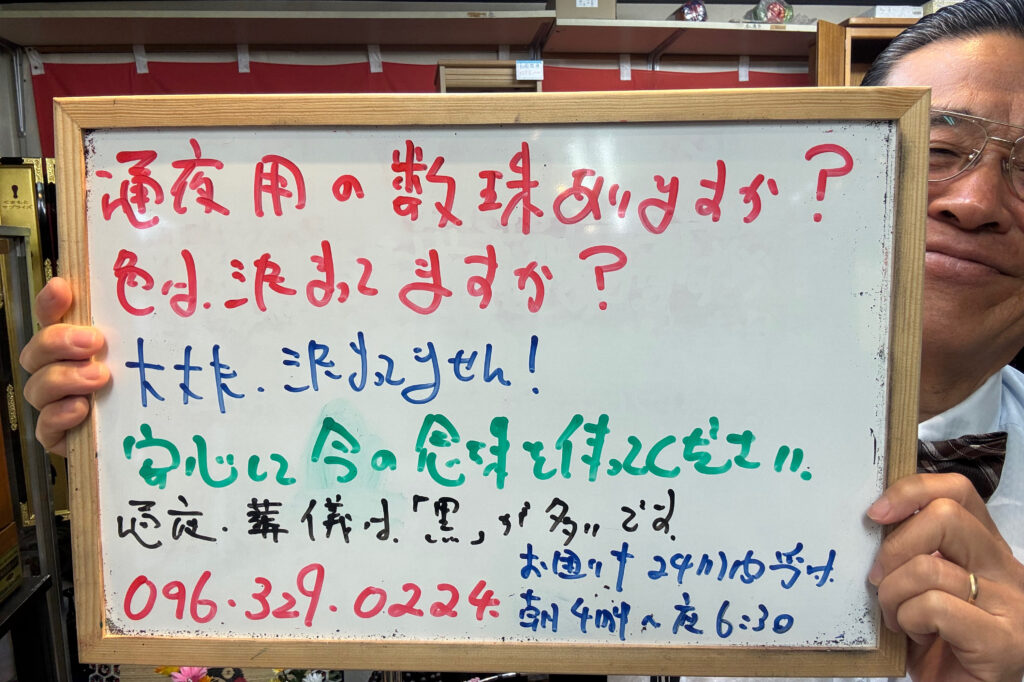 通夜用の数珠ありますか?
色は、決まってますか?
大丈夫、決まってません!
安心して今の念珠を使ってください。
通夜・葬儀は、「黒」が多いです
096・329・0224
朝4時~夜6:30